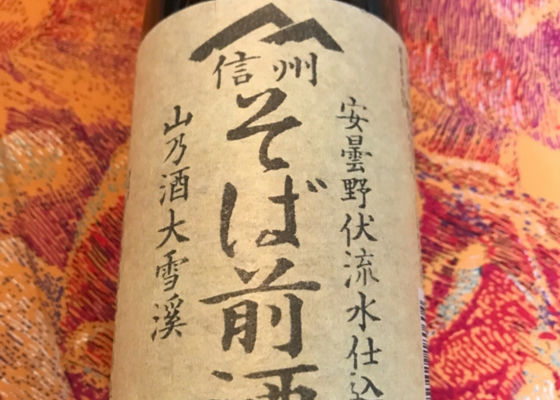 信州
安曇野伏流水仕込
そば前酒
山乃酒大雪溪